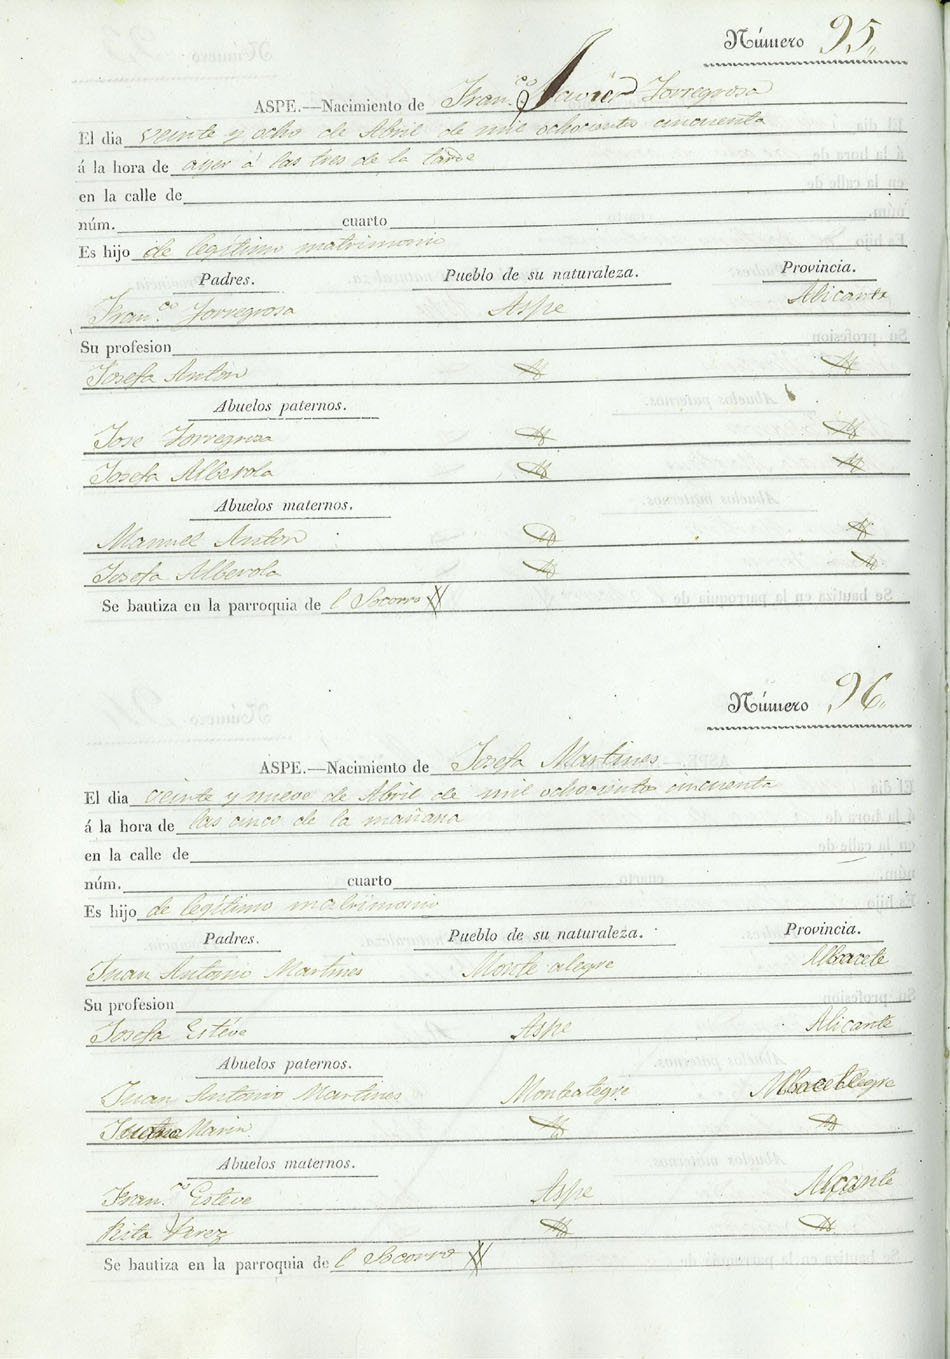 Número 95,,
ASPE.—Nacimiento de Fran.co Javier Torregrosa
El dia veinte y ocho de Abril de mil ochocientos cincuenta
á la hora de ayer á las tres de la tarde
en la calle de
núm. cuarto
Es hijo de legítimo matrimonio
Padres. Pueblo de su naturaleza. Provincia.
Fran.co Torregrosa Aspe Alicante
Su profesion
Josefa Anton
Abuelos paternos.
Jose Torregrosa
Josefa Alberola
Abuelos maternos.
Manuel Anton
Josefa Alberola
Se bautiza en la parroquia de l Socorro
Número 96,,
ASPE.—Nacimiento de Josefa Martines
El dia veinte y nueve de Abril de mil ochocientos cincuenta
á la hora de las cinco de la mañana
en la calle de
núm. cuarto
Es hijo de legítimo matrimonio
Padres. Pueblo de su naturaleza. Provincia.
Juan Antonio Martines Monte alegre Albacete
Su profesion
Josefa Estéve Aspe Alicante
Abuelos paternos.
Juan Antonio Martines Montalegre
Marin
Abuelos maternos.
Fran.co Esteve Aspe Alicante
Rita Perez
Se bautiza en la parroquia de l Socorro